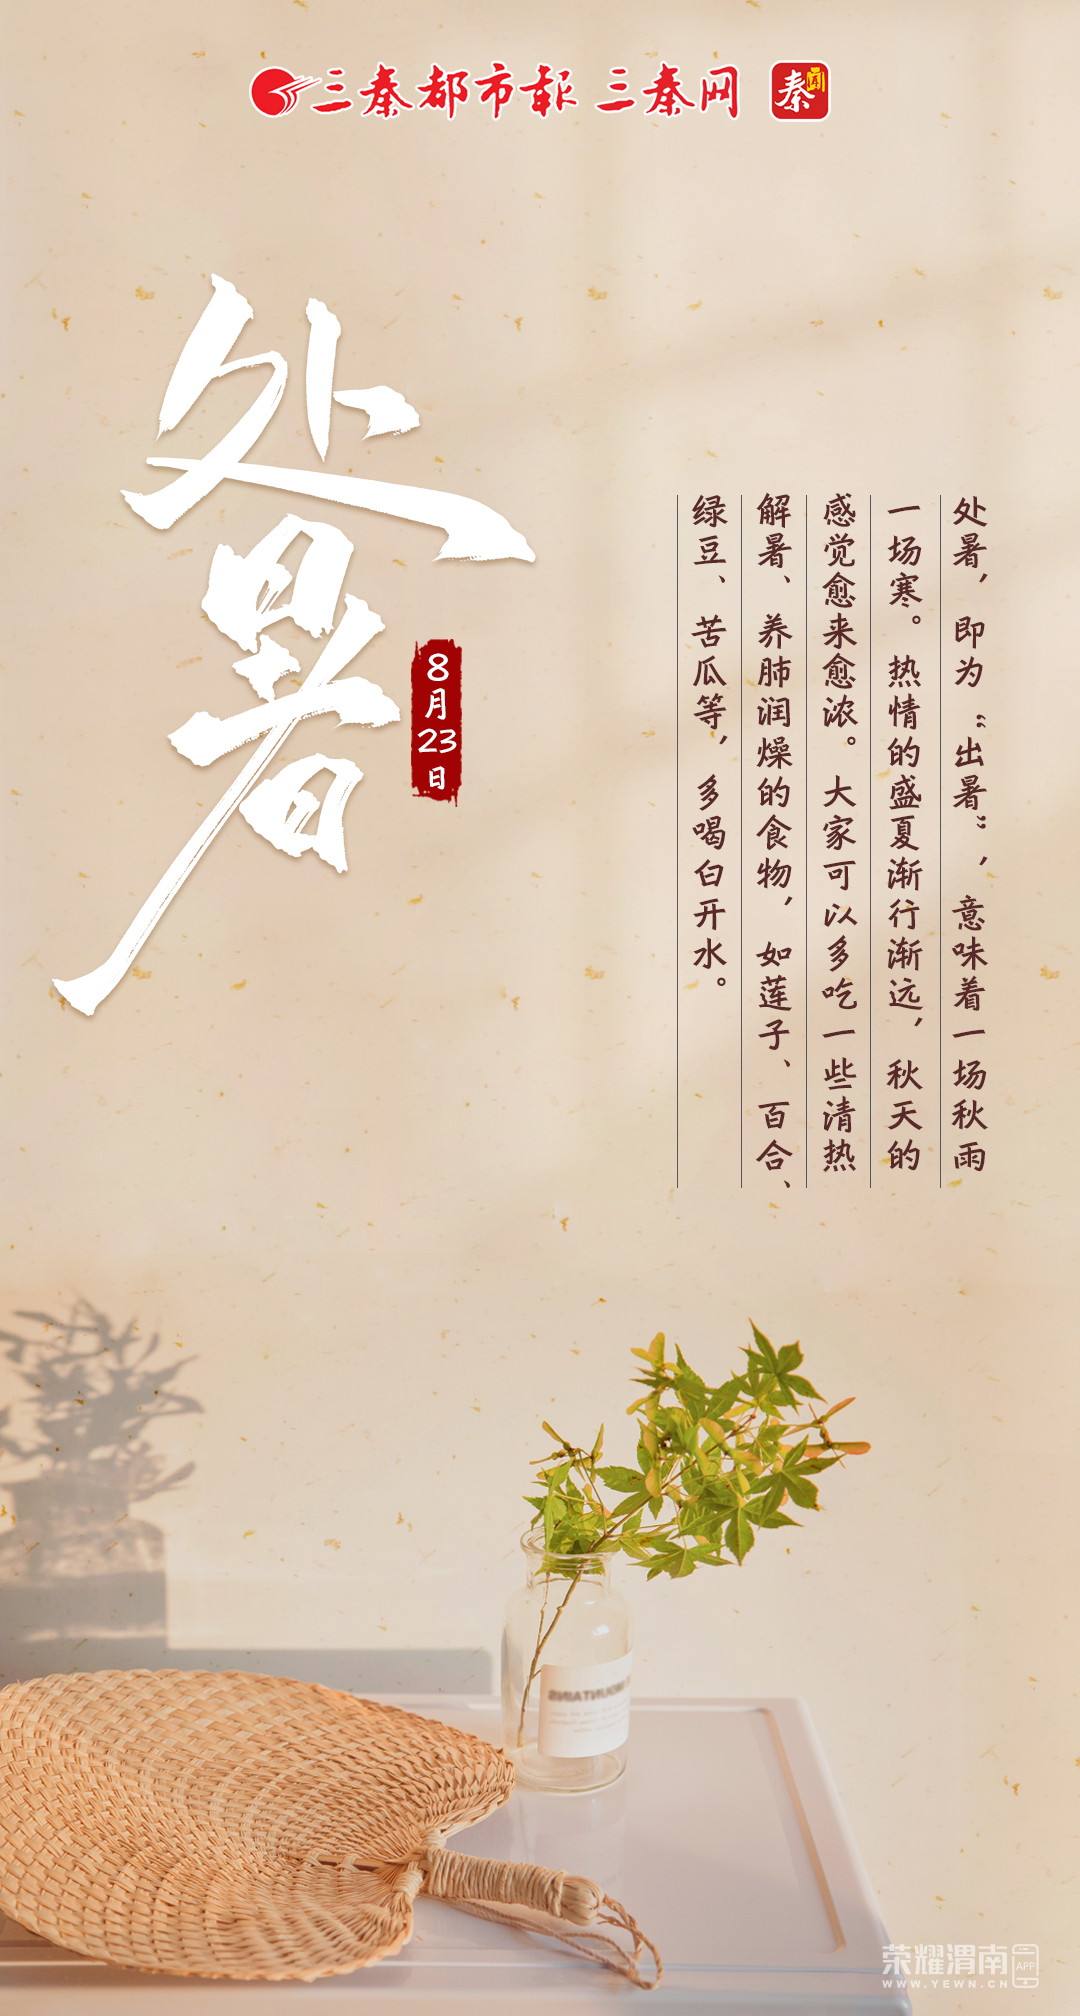 三秦都市报 三秦网 秦闻
处暑
8月23日
处暑，即为“出暑”，意味着一场秋雨
一场寒。热情的盛夏渐行渐远，秋天的
感觉愈来愈浓。大家可以多吃一些清热
解暑、养肺润燥的食物，如莲子、百合、
绿豆、苦瓜等，多喝白开水。
MOUNTAINS
荣耀渭南 APP
WWW.YEWN.CN